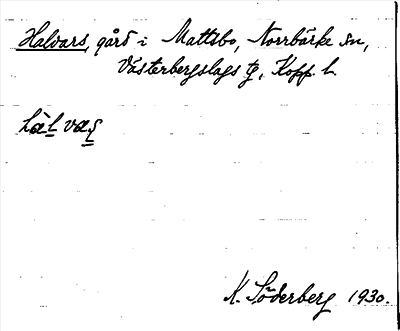 Halvars, gård i Mattsbo, Norrbärke sn,
Västerbergslags tg, Kopp. l.
hàl vaṣ
K. Söderberg 1930.